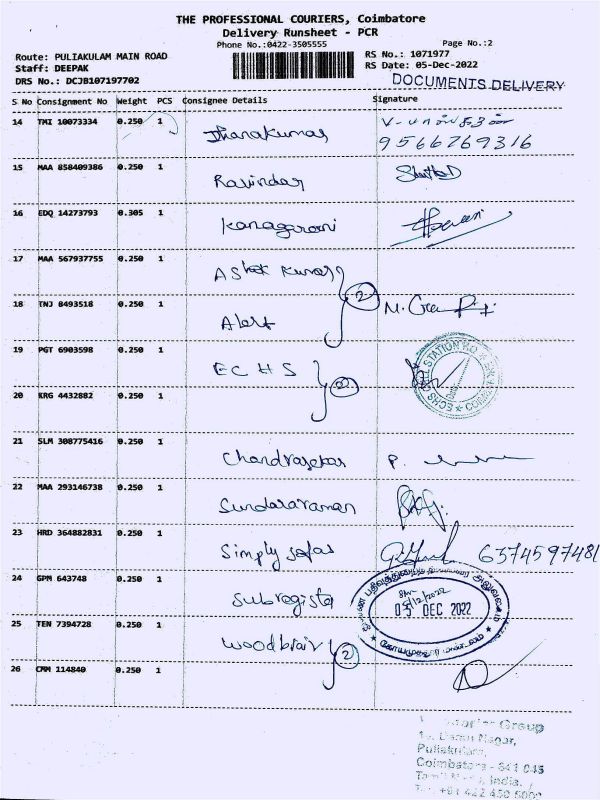 THE PROFESSIONAL COURIERS, Coimbatore
Delivery Runsheet - PCR
Phone No.:0422-3505555
Page No.:2
Route: PULIAKULAM MAIN ROAD
RS No.: 1071977
Staff: DEEPAK
RS Date: 05-Dec-2022
DRS No.: DCJB107197702
DOCUMENTS DELIVERY
S No Consignment No Weight PCS Consignee Details Signature
14 TMI 10073334 0.250 1 Dhanakumar
9566769316
15 MAA 858409386 0.250 1 Ravindar
16 EDQ 14273793 0.305 1 Kanagarani
17 MAA 567937755 0.250 1 Ashok Kumar
2
18 TNJ 8493518 0.250 1 Alert
19 PGT 6903598 0.250 1 ECHS
ECHS CELL STATION H.Q
2
20 KRG 4432882 0.250 1
21 SLM 308775416 0.250 1 Chandrasekar P.
22 MAA 293146738 0.250 1 Sundararaman
23 HRD 364882831 0.250 1 Simply sofas 6374597481
24 GPM 643748 0.250 1 Subregister
05 DEC 2022
25 TEN 7394728 0.250 1 Woodbriar
2
26 CMM 114840 0.250 1
Group
Nagar,
Puliakulam,
Coimbatore - 641 045
India.
+91 422 450